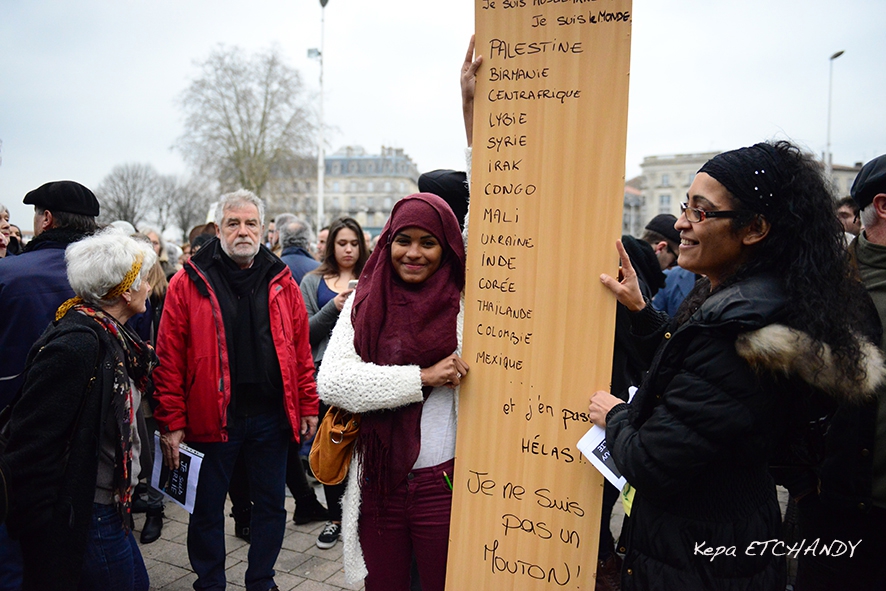 Je suis MUSULMANE
Je suis le MONDE.
PALESTINE
BIRMANIE
CENTRAFRIQUE
LYBIE
SYRIE
IRAK
CONGO
MALI
UKRAINE
INDE
CORÉE
THAÏLANDE
COLOMBIE
MEXIQUE
...
et j'en pas
HÉLAS!..
Je ne suis
pas un
Mouton!
JE SUIS
Kepa ETCHANDY